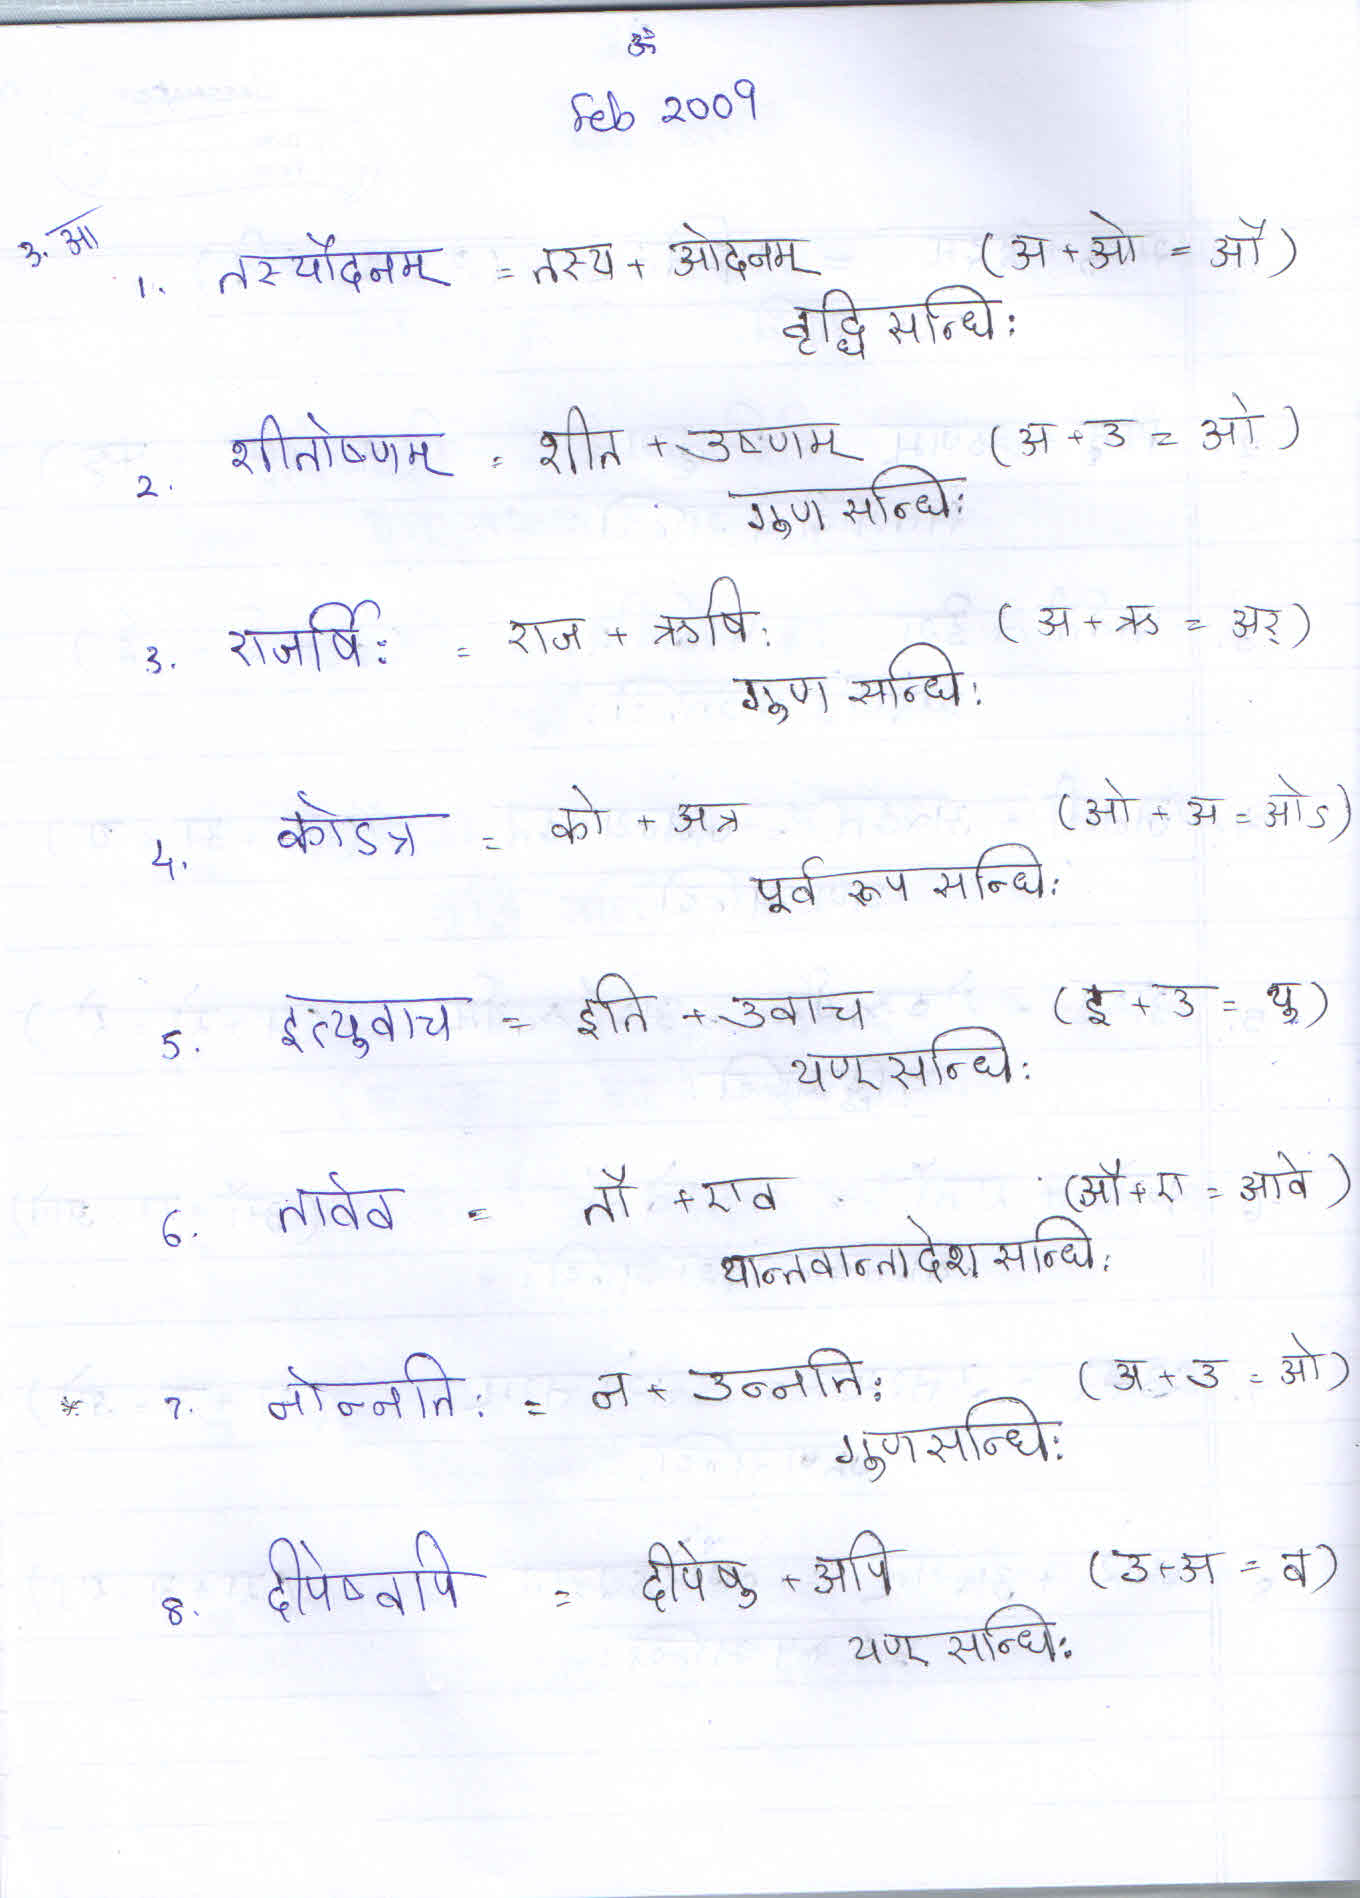 ॐ
Feb 2009
3. आ
1. तस्यौदनम् = तस्य + ओदनम् (अ + ओ = औ)
वृद्धि सन्धिः
2. शीतोष्णम् = शीत + उष्णम् (अ + उ = ओ)
गुण सन्धिः
3. राजर्षिः = राज + ऋषिः (अ + ऋ = अर्)
गुण सन्धिः
4. कोऽत्र = को + अत्र (ओ + अ = ओऽ)
पूर्व रूप सन्धिः
5. इत्युवाच = इति + उवाच (इ + उ = यु)
यण् सन्धिः
6. तावेव = तौ + एव (औ + ए = आवे)
यान्तवान्तादेश सन्धिः
* 7. नोन्नतिः = न + उन्नतिः (अ + उ = ओ)
गुण सन्धिः
8. दीपेष्वपि = दीपेषु + अपि (उ + अ = व)
यण् सन्धिः